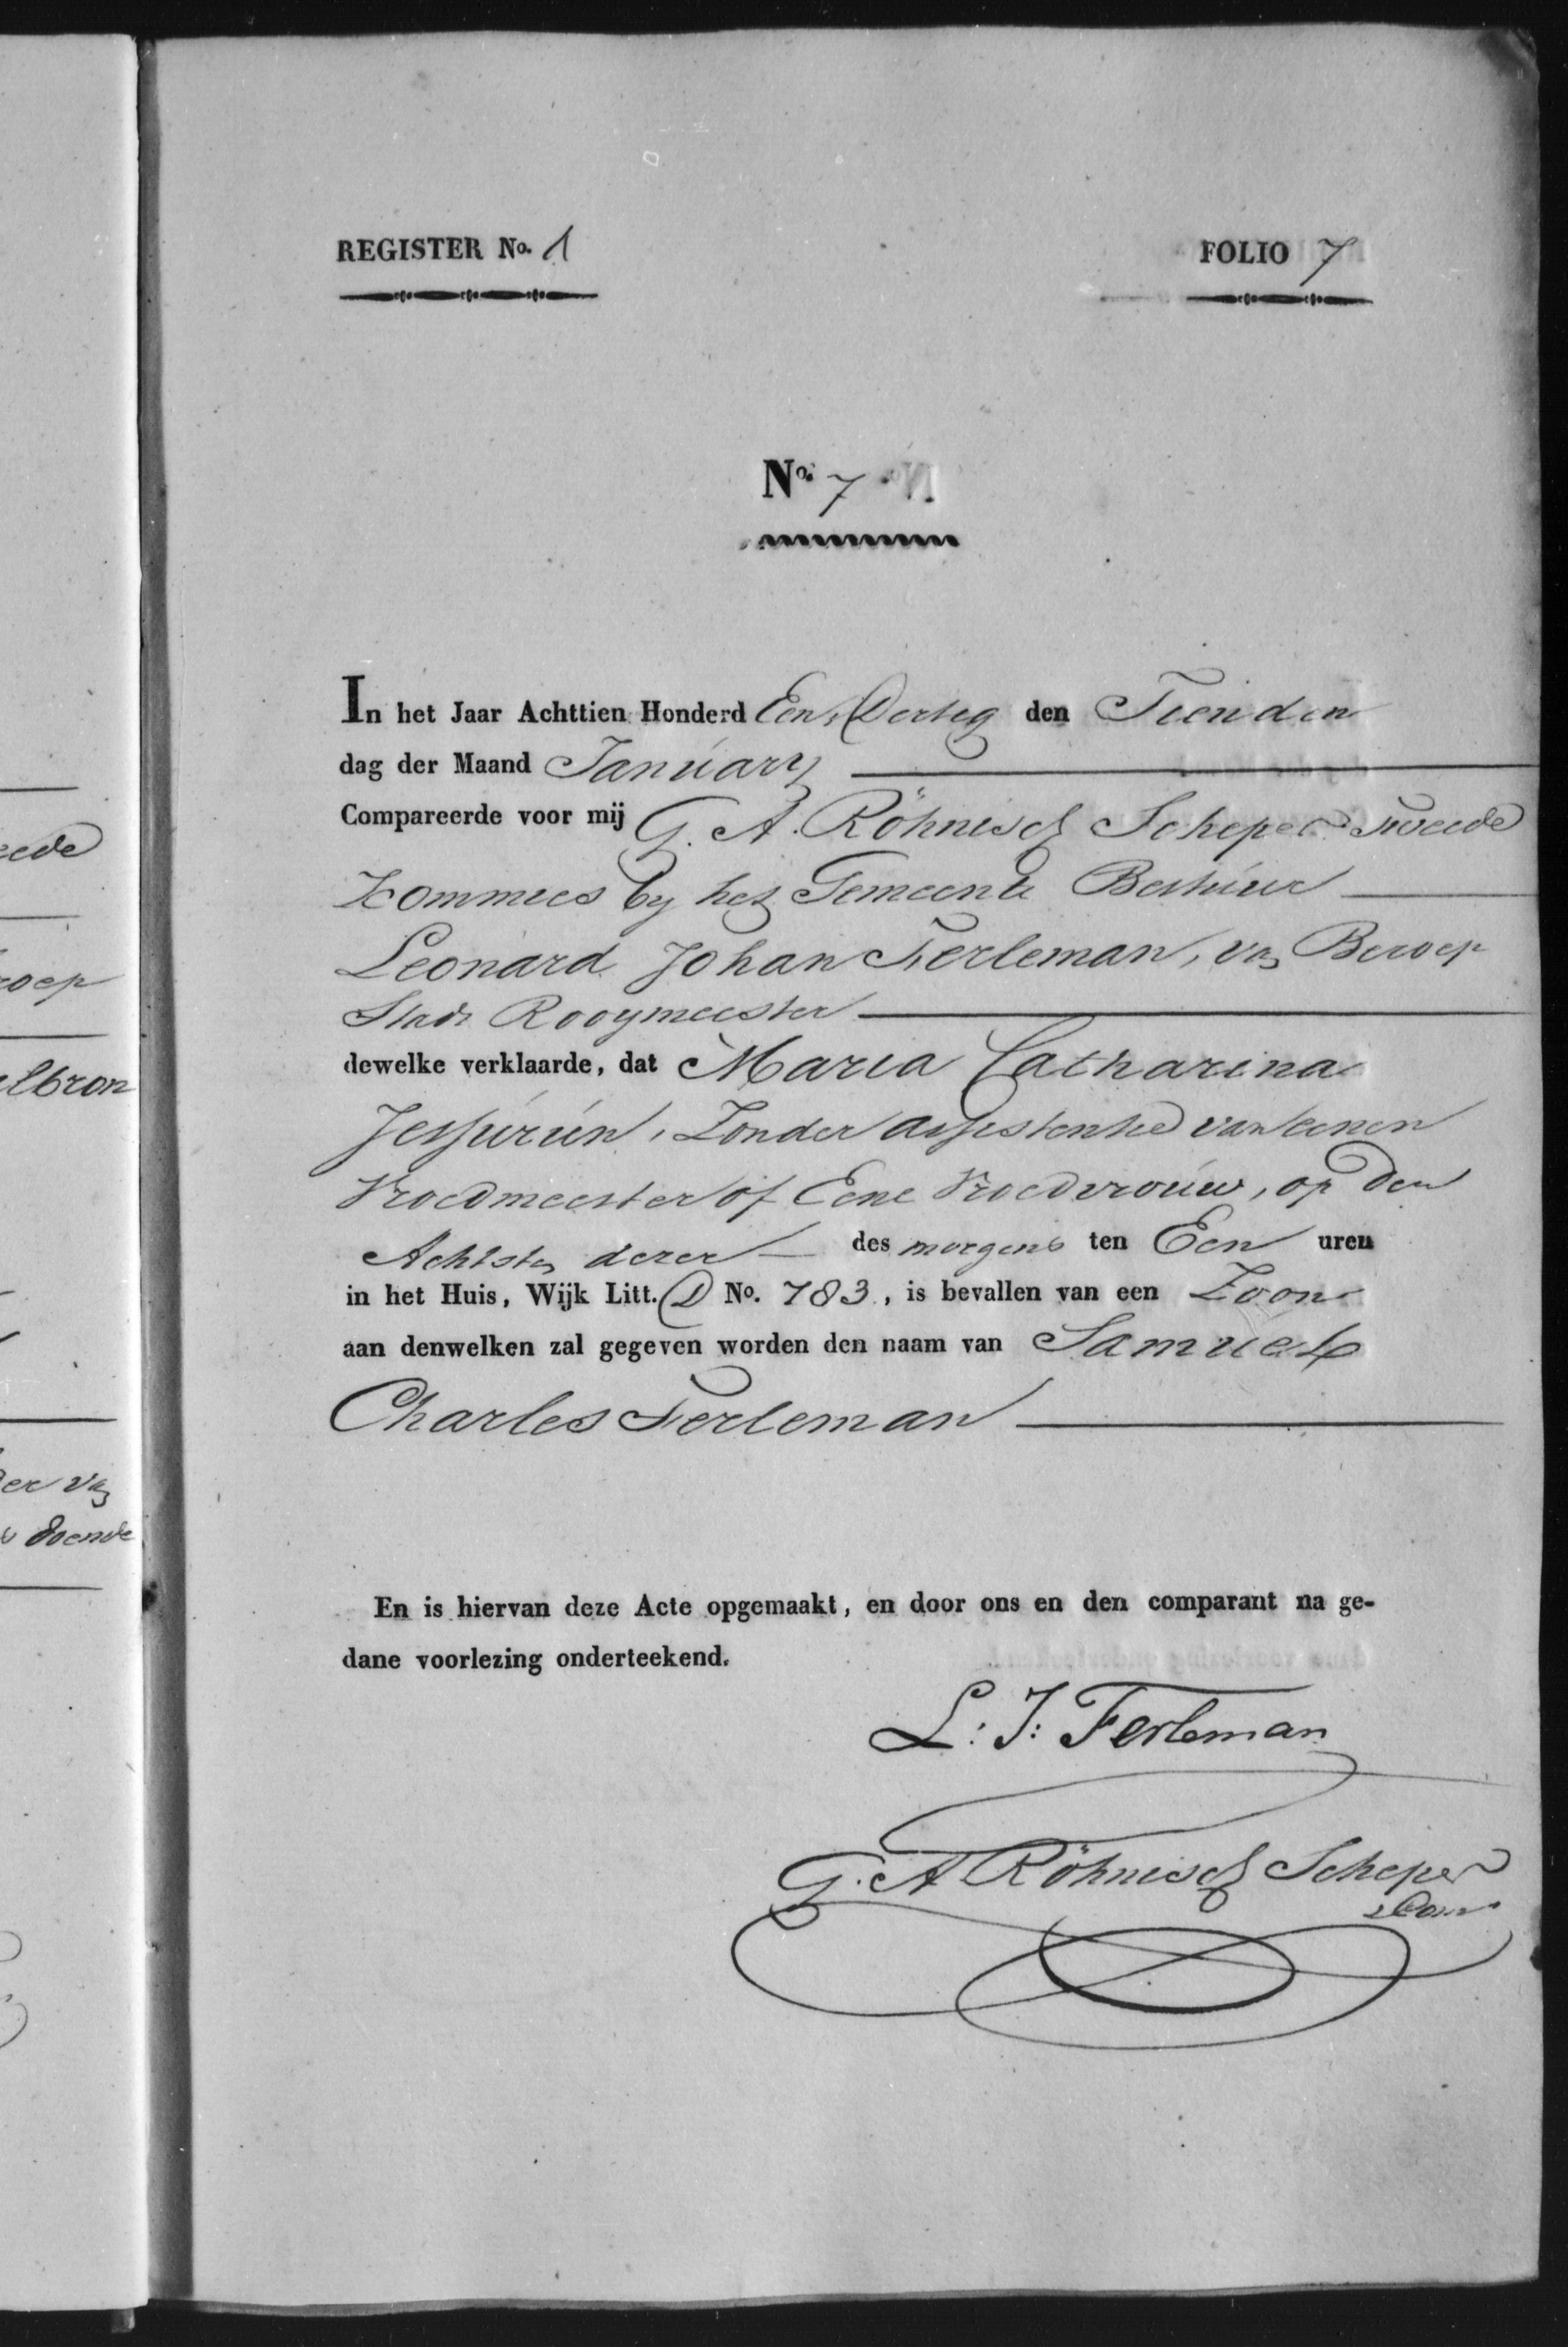 REGISTER No. 1
FOLIO 7
No. 7
In het Jaar Achttien Honderd Een Dertig den Tienden
dag der Maand January
Compareerde voor mij G. A. Röhnisch Scheper Tweede
Kommies by het Gemeente Bestuur
Leonard Johan Ferleman, van Beroep
Stads Rooymeester
dewelke verklaarde, dat Maria Catharina
Jessurun, Zonder assistentie van eenen
Vroedmeester of Eene Vroedvrouw, op den
Achtsten dezer des morgens ten Een uren
in het Huis, Wijk Litt. D No. 783, is bevallen van een Zoon
aan denwelken zal gegeven worden den naam van Samuel
Charles Ferleman
En is hiervan deze Acte opgemaakt, en door ons en den comparant na ge-
dane voorlezing onderteekend.
L: J: Ferleman
G. A Röhnisch Scheper
eede
roep
lbron
er van
doende